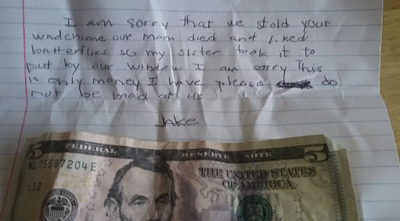 I am sorry that we stold your
windchime our mom died and liked
butterflies so my sister took it to
put by our window I am sorry This
is only money I have please do
not be mad at us
Jake
5
FEDERAL RESERVE NOTE
5
THE UNITED STATES
OF AMERICA
L12